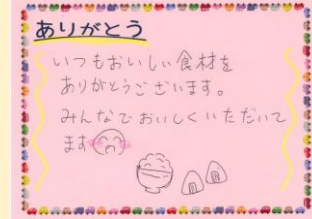 ありがとう
いつもおいしい食材を
ありがとうございます。
みんなでおいしくいただいて
ます